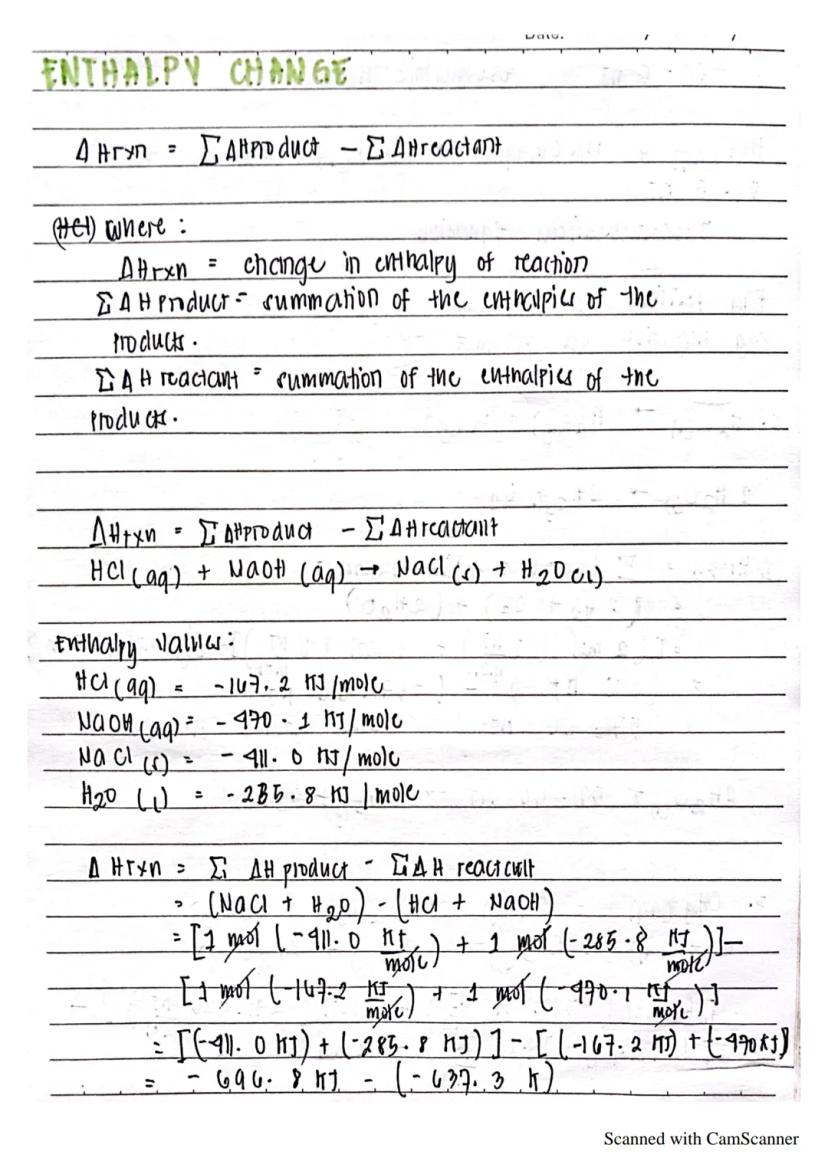 Date: / /
ENTHALPY CHANGE
Δ Hrxn = ΣΔHproduct - Σ ΔHreactant
(HCl) where :
ΔHrxn = change in enthalpy of reaction
ΣΔH product = summation of the enthalpies of the
products.
ΣΔH reactant = summation of the enthalpies of the
products.
ΔHrxn = ΣΔHproduct - ΣΔHreactant
HCl (aq) + NaOH (aq) → NaCl (s) + H2O (l)
Enthalpy values:
HCl (aq) = -167.2 KJ/mole
NaOH (aq) = -470.1 KJ/mole
NaCl (s) = -411.0 KJ/mole
H2O (l) = -285.8 KJ/mole
Δ Hrxn = Σ ΔH product - ΣΔH reactant
= (NaCl + H2O) - (HCl + NaOH)
= [1 mol (-411.0 KJ/mole) + 1 mol (-285.8 KJ/mole)] -
[1 mol (-167.2 KJ/mole) + 1 mol (-470.1 KJ/mole)]
= [(-411.0 KJ) + (-285.8 KJ)] - [(-167.2 KJ) + (-470KJ)
= -696.8 KJ - (-637.3 K)
Scanned with CamScanner